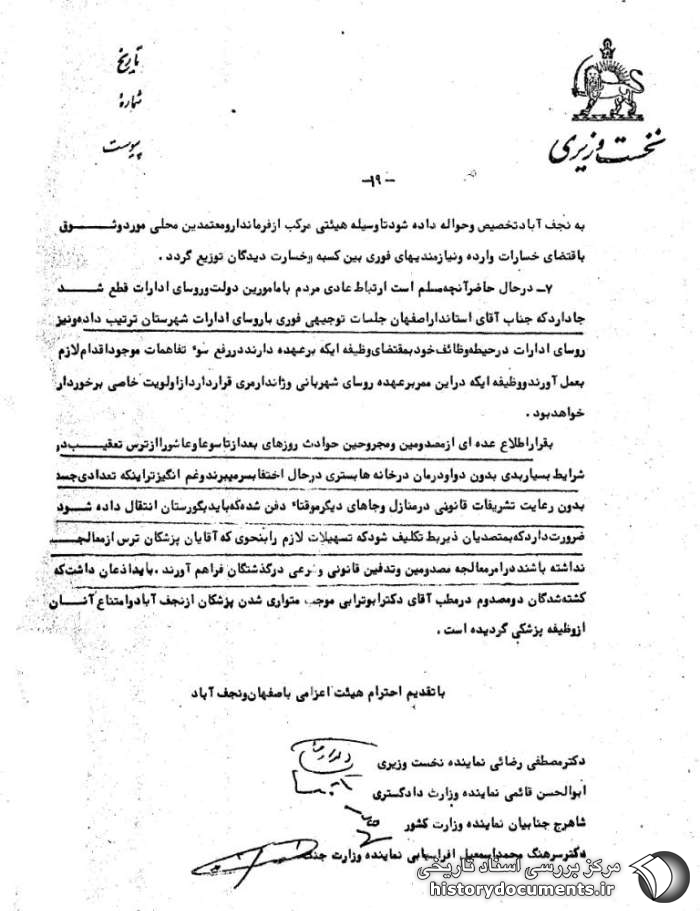 نخست وزیری
تاریخ
شماره
پیوست
-۱۹-
به نجف آباد تخصیص وحواله داده شود تا وسیله هیئتی مرکب از فرماندار و معتمدین محلی مورد وثوق
باقتضای خسارات وارده ونیازمندیهای فوری بین کسبه و خسارت دیدگان توزیع گردد .
۷- در حال حاضر آنچه مسلم است ارتباط عادی مردم با مامورین دولت وروسای ادارات قطع شده
جادارد که جناب آقای استاندار اصفهان جلسات توجیهی فوری با روسای ادارات شهرستان ترتیب داده ونیز
روسای ادارات در حیطه وظائف خود بمقتضای وظیفه ایکه برعهده دارند در رفع سوء تفاهمات موجود اقدام لازم
بعمل آورند ووظیفه ایکه در این ممر برعهده روسای شهربانی وژاندارمری قرار دارد از اولویت خاصی برخوردار
خواهد بود .
بقرار اطلاع عده ای از مصدومین ومجروحین حوادث روزهای بعد از تاسوعا وعاشورا از ترس تعقیب در
شرایط بسیار بدی بدون دوا ودرمان در خانه ها بستری در حال اختفا بسر میبرند وغم انگیزتر اینکه تعدادی جسد
بدون رعایت تشریفات قانونی در منازل وجاهای دیگر موقتاً دفن شده که باید بگورستان انتقال داده شود
ضرورت دارد که بمتصدیان ذیربط تکلیف شود که تسهیلات لازم را بنحوی که آقایان پزشکان ترس از معالجه
نداشته باشند در امر معالجه مصدومین وتدفین قانونی و شرعی درگذشتگان فراهم آورند . باید اذعان داشت که
کشته شدگان دو مصدوم در مطب آقای دکتر ابوترابی موجب متواری شدن پزشکان از نجف آباد وامتناع آنان
از وظیفه پزشکی گردیده است .
با تقدیم احترام هیئت اعزامی باصفهان ونجف آباد
دکتر مصطفی رضائی نماینده نخست وزیری
ابوالحسن قائمی نماینده وزارت دادگستری
شاهرج جنابیان نماینده وزارت کشور
دکتر سرهنگ محمد اسمعیل افراسیابی نماینده وزارت جنگ
مرکز بررسی اسناد تاریخی
historydocuments.ir